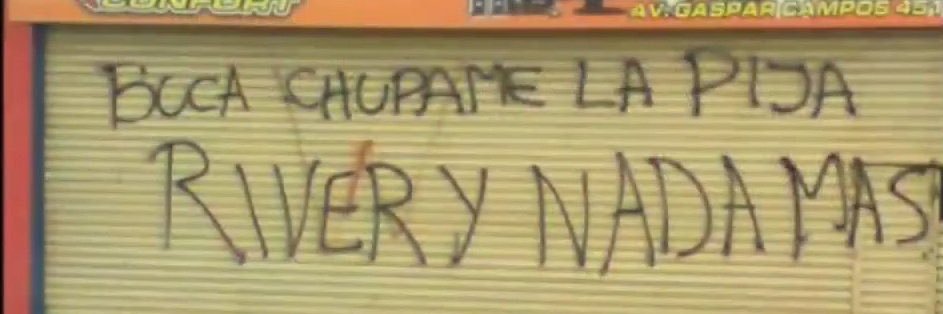 CONFORT
AV. GASPAR CAMPOS 451
BOCA CHUPAME LA PIJA
RIVER Y NADA MAS